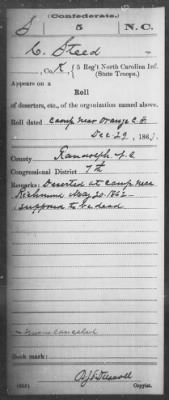 (Confederate.)
S 5 N.C.
C. Steed
, Co. K, { 5 Reg't North Carolina Inf.
(State Troops.)
Appears on a
Roll
of deserters, etc., of the organization named above.
Roll dated Camp near Orange C. H.
Dec 29, 186
County Randolph N.C
Congressional District 7th
Remarks: Deserted at camp near
Richmond May 20. 1862
supposed to be dead
canceled
Book mark:
Copyist.